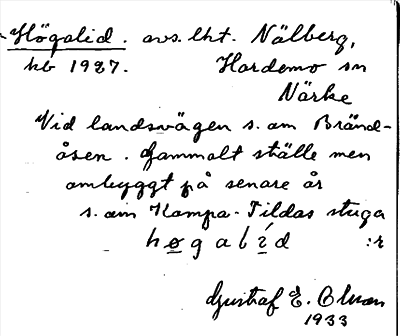 Högalid. avs. lht. Nälberg,
hb 1927. Hardemo sn
Närke
Vid landsvägen s. om Bränd-
åsen. Gammalt ställe men
ombyggt på senare år
s. om Kampa-Tildas stuga
høgalíd :r
Gustaf E. Olson
1933